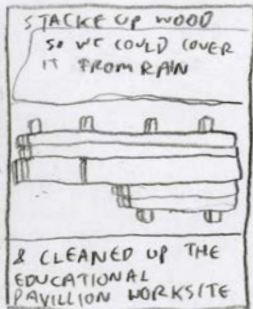 STACKED UP WOOD
SO WE COULD COVER
IT FROM RAIN
& CLEANED UP THE
EDUCATIONAL
PAVILLION WORKSITE